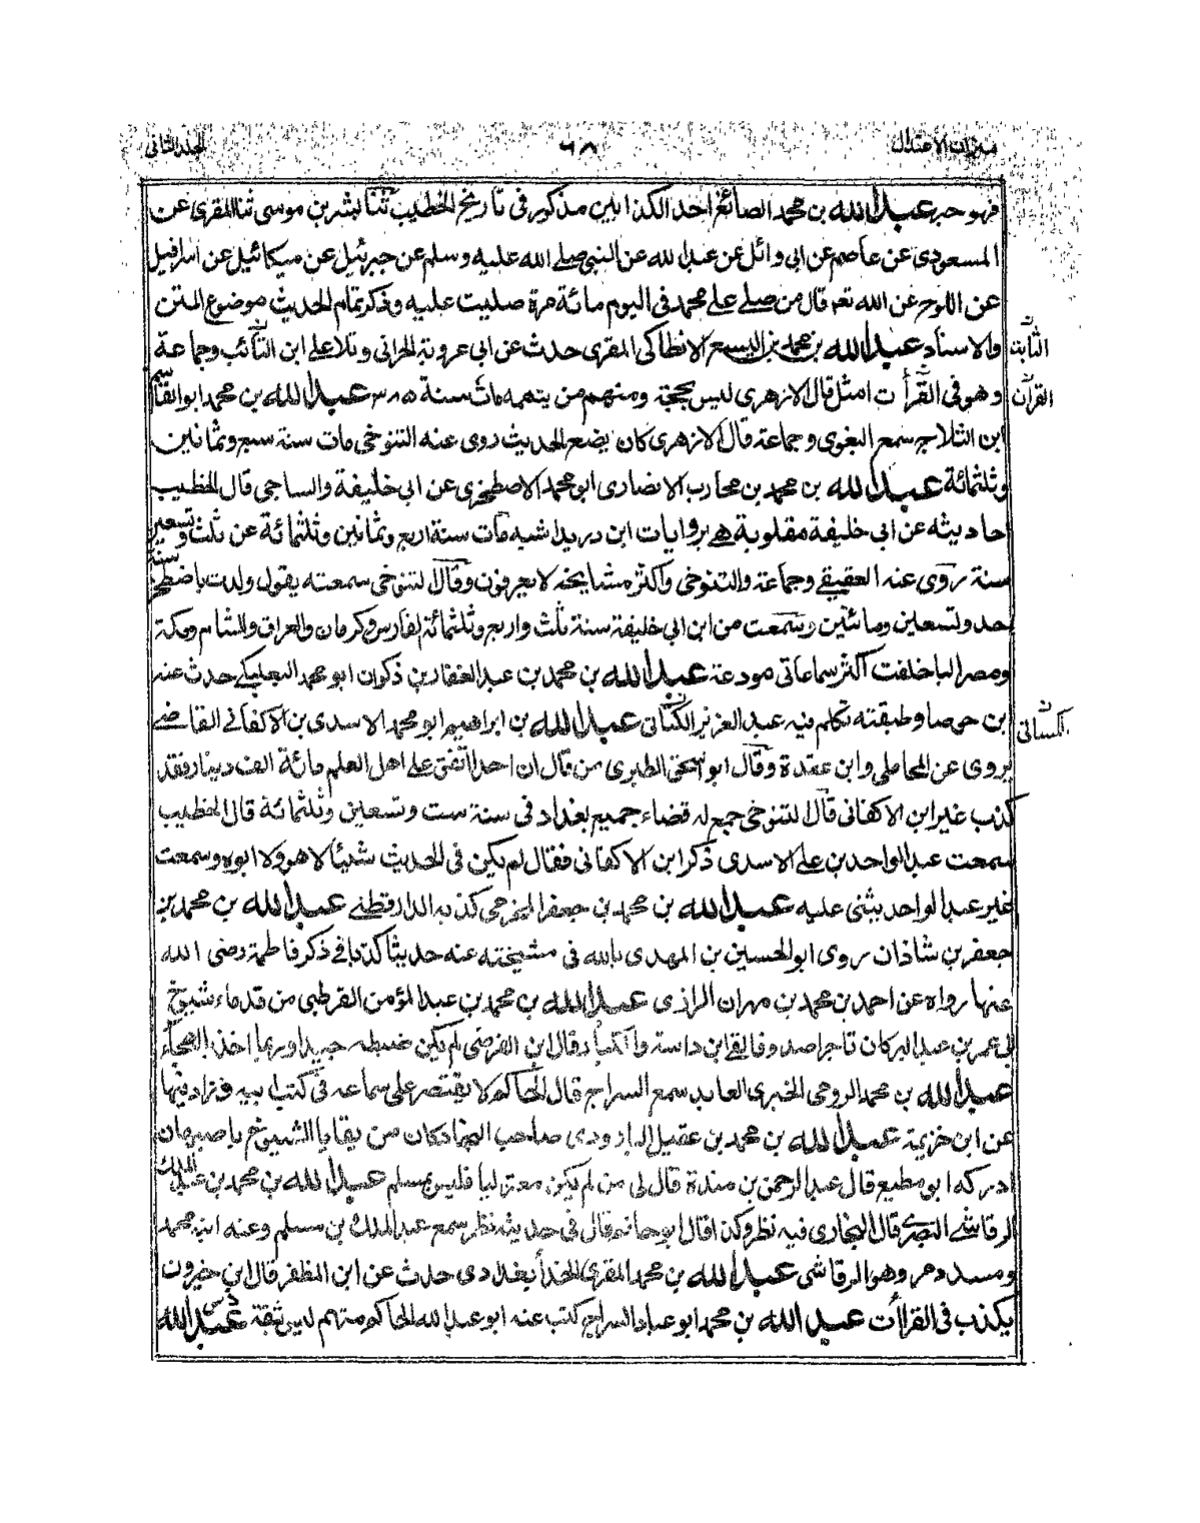 ميزان الاعتدال ٦٨ الجلد الثانى
فهو خبر عبد الله بن محمد الصائغ احد الكذابين مذكور فى تاريخ الخطيب ثنا بشر بن موسى ثنا المقرى عن
المسعودى عن عاصم عن ابى وائل عن عبد الله عن النبى صلى الله عليه وسلم عن جبرئيل عن ميكائيل عن اسرافيل
عن اللوح عن الله تعه قال من صلے علے محمد فى اليوم مائة مرة صليت عليه وذكر تمام الحديث موضوع المتن
والاسناد عبد الله بن محمد بن اليسع الانطاكى المقرى حدث عن ابى عروبة الحرانى وتلا على ابن التائب وجماعة
الثابت
وهو فى القرأت امثل قال الازهرى ليس بحجة ومنهم من يتهمه مات سنة ٣٨٥ عبد الله بن محمد ابو القاسم
القرآن
ابن الثلاج سمع البغوى وجماعة قال الازهرى كان يضع الحديث روى عنه التنوخى مات سنة سبع وثمانين
وثلثمائة عبد الله بن محمد بن محارب الانصارى ابو محمد الاصطخرى عن ابى خليفة والساجى قال الخطيب
احاديثه عن ابى خليفة مقلوبة هے بروايات ابن دريد اشبه مات سنة اربع وثمانين وثلثمائة عن ثلث وتسعين
سنة روى عنه العقيقے وجماعة والتنوخى واكثر مشايخه لا يعرفون وقال التنوخى سمعته يقول ولدت باصطخر سنة
احد وتسعين ومائتين وسمعت من ابن ابى خليفة سنة ثلث واربع وثلثمائة بفارس وكرمان والعراق والشام ومكة
ومصر البا خلفت اكثر سماعاتى مودعة عبد الله بن محمد بن عبد الغفار بن ذكوان ابو محمد البعلبكے حدث عنه
ابن حوصا وطبقته تكلم فيه عبد العزيز الكتانى عبد الله بن ابراهيم ابو محمد الاسدى بن الاكفانے القاضے
الكسائى
يروى عن المحاملى وابن عقدة وقال ابو اسحق الطبرى من قال ان احدا انفق على اهل العلم مائة الف دينار فقد
كذب غير ابن الاكفانى قال التنوخى جمع له قضاء جميع بغداد فى سنة ست وتسعين وثلثمائة قال الخطيب
سمعت عبد الواحد بن علے الاسدى ذكر ابن الاكفانى فقال لم يكن فى الحديث شيئا لا هو ولا ابوه وسمعت
غير عبد الواحد يثنى عليه عبد الله بن محمد بن جعفر المخرمى كذبه الدارقطنے عبد الله بن محمد بن
جعفر بن شاذان روى ابو الحسين بن المهدى بالله فى مشيخته عنه حديثا كذبا فے ذكر فاطمة رضى الله
عنها رواه عن احمد بن محمد بن مهران الرازى عبد الله بن محمد بن عبد المؤمن القرطبى من قدماء شيوخ
ابى عمر بن عبد البر كان تاجرا صدوقا لقے ابن داسة والكبار قال ابن الفرضى لم يكن ضبطه جيدا وربما اخذ الهجاء
عبد الله بن محمد الرومى الخبرى العابد سمع السراج قال الحاكم لا يقتصر على سماعه فى كتب ابيه فزاد فيها
عن ابن خزيمة عبد الله بن محمد بن عقيل البارودى صاحب النجاد كان من بقايا الشيوخ باصبهان
ادركه ابو مطيع قال عبد الرحمن بن مندة قال لى من لم يكن معتزليا فليس بمسلم عبد الله بن محمد بن عبد الملك
الرقاشے البصرے قال البخارى فيه نظر وكذا قال ابو حاتم قال فى حديثه نظر سمع عبد الملك بن مسلم وعنه ابنه محمد
ومسدد وهو الرقاشى عبد الله بن محمد المقرى الحذاء بغدادى حدث عن ابن المظفر قال ابن خيرون
يكذب فى القراأت عبد الله بن محمد ابو عباد السراج كتب عنه ابو عبد الله الحاكم متهم ليس بثقة عبد الله